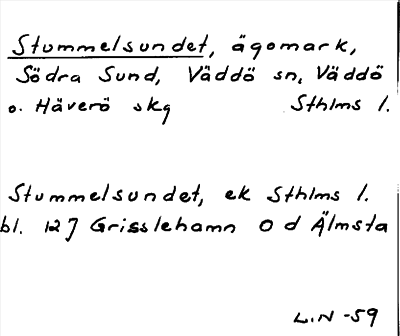 Stummelsundet, ägomark,
Södra Sund, Väddö sn, Väddö
o. Häverö skg Sthlms l.
Stummelsundet, ek Sthlms l.
bl. 127 Grisslehamn O d Älmsta
L.N -59